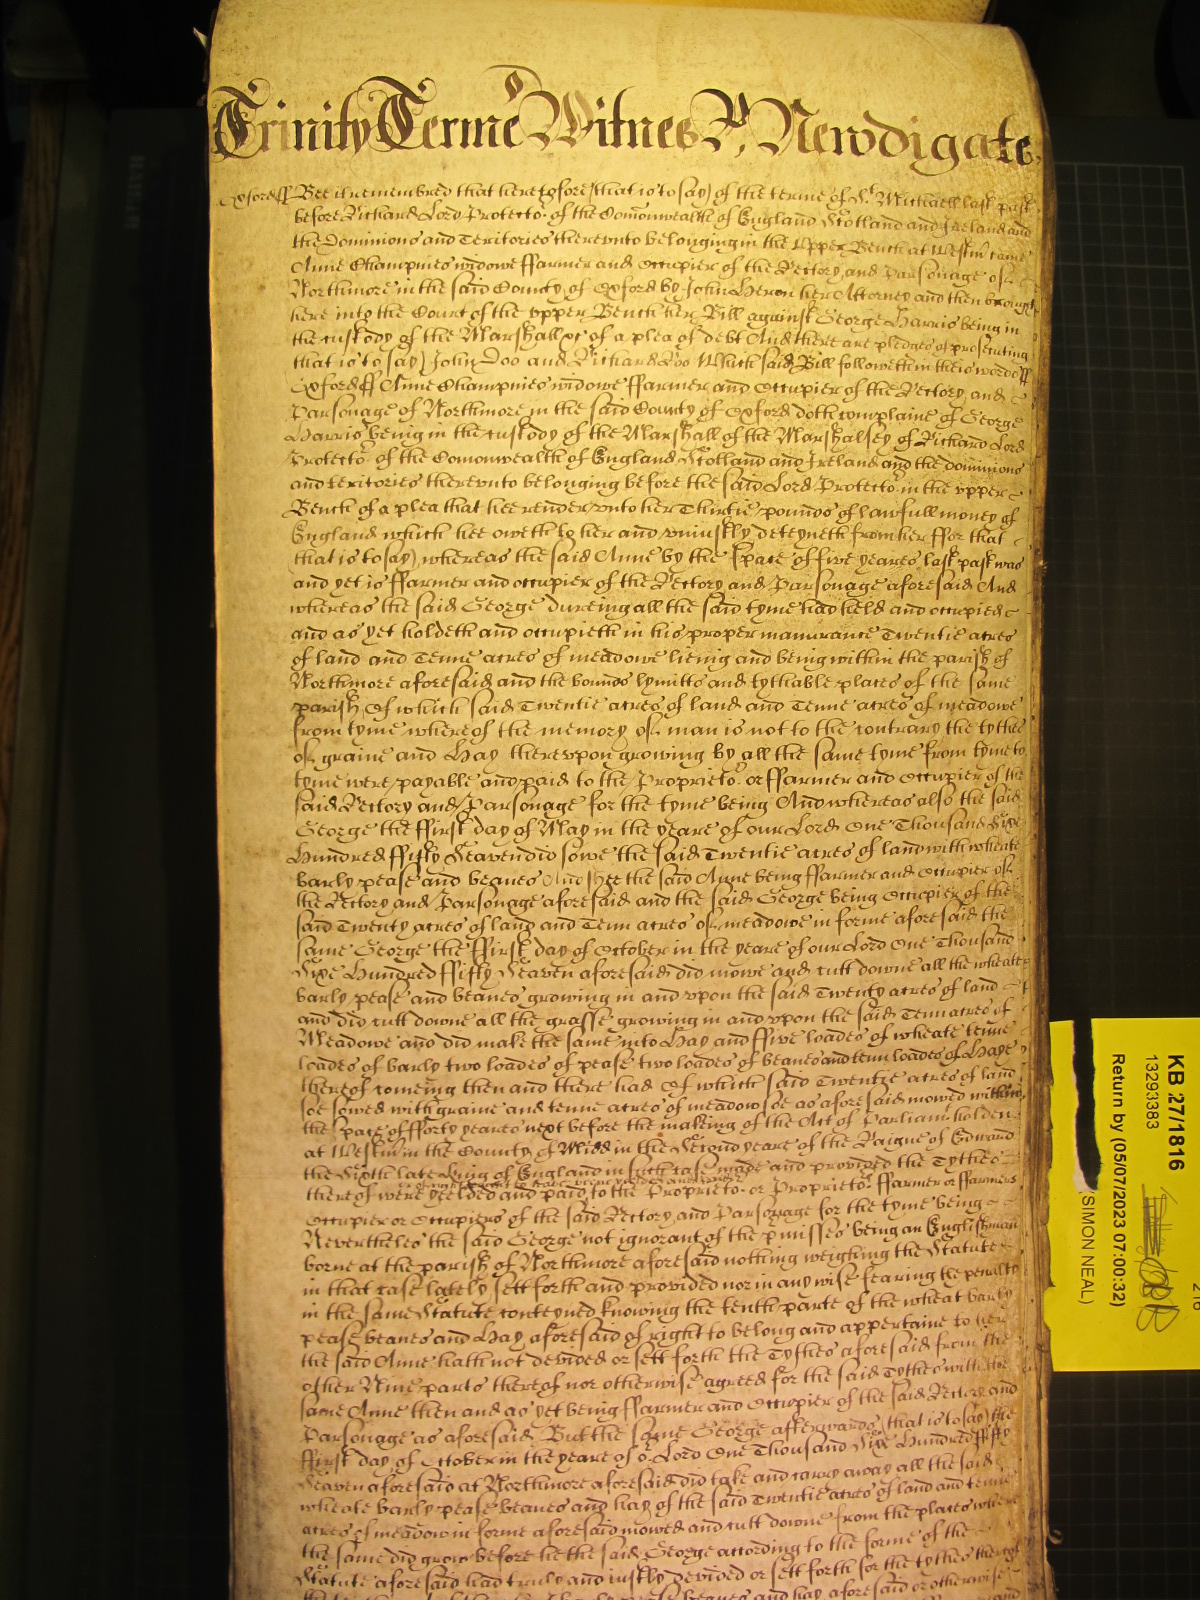 Trinity Terme Witnes R, Newdigate
Oxford ff Bee it remembred that heretofore (that is to say) of the terme of St Michaell last past
before Richard Lord Protector of the Comonwealth of England Scotland and Ireland and
the Dominions and Teritories therevnto belonging in the Vpper Bench at Westm came
Anne Champnies widowe ffarmer and Occupier of the Rectory and Parsonage of
Northmore in the said County of Oxford by John Heron her Attorney and then brought
here into the Court of the vpper Bench her Bill against George Harris being in
the custody of the Marshall &c of a plea of debt And there are pledges of prosecuting
that is to say) John Doo and Richard Roo Which said Bill followeth in theis words ff
Oxford ff Anne Champnies widowe ffarmer and Occupier of the Rectory and
Parsonage of Northmore in the said County of Oxford doth complaine of George
Harris being in the custody of the Marshall of the Marshalsey of Richard Lord
Protector of the Comonwealth of England Scotland and Ireland and the dominions
and teritories therevnto belonging before the said Lord Protector in the vpper
Bench of a plea that hee render vnto her Thirtie pounds of lawfull money of
England which hee oweth to her and vniustly deteyneth from her ffor that
that is to say) whereas the said Anne by the space of five yeares last past was
and yet is ffarmer and occupier of the Rectory and Parsonage aforesaid And
whereas the said George dureing all the said tyme had held and occupied
and as yet holdeth and occupieth in his proper manurance Twentie acres
of land and Tenne acres of meadowe lieing and being within the parish of
Northmore aforesaid and the bounds lymitts and tythable places of the same
parish Of which said Twentie acres of land and Tenne acres of meadowe
from tyme whereof the memory of man is not to the contrary the tythes
of graine and Hay therevpon growing by all the same tyme from tyme to
tyme were payable and paid to the Proprietor or ffarmer and Occupier of the
said Rectory and Parsonage for the tyme being And whereas also the said
George the ffirst day of May in the yeare of our Lord One Thousand Sixe
Hundred ffifty Seaven did sowe the said Twentie acres of land with wheate
barly pease and beanes And shee the said Anne being ffarmer and Occupier of
the Rectory and Parsonage aforesaid and the said George being Occupier of the
said Twenty acres of land and Tenn acres of meadowe in forme aforesaid the
same George the ffirst day of October in the yeare of our Lord One Thousand
Sixe Hundred ffifty Seaven aforesaid did mowe and cutt downe all the wheate
barly pease and beanes growing in and vpon the said Twenty acres of land
and did cutt downe all the grasse growing in and vpon the said Tenn acres of
Meadowe and did make the same into Hay and ffive loades of wheate tenne
loades of barly two loades of pease two loades of beanes and tenn loades of Haye
thereof comeing then and there had Of which said Twentie acres of land
soe sowed with graine and tenne acres of meadow soe as aforesaid mowed within
the space of fforty yeares next before the makeing of the Act of Parliamt holden
at Westm in the County of Midd in the Second yeare of the Raigne of Edward
the Sixth late King of England in such case made and provided the Tythes
thereof were yeelded and paid to the Proprietor or Proprietors ffarmer or ffarmers
Occupier or Occupiers of the said Rectory and Parsonage for the tyme being
Nevertheles the said George not ignorant of the pmisses being an Englishman
borne at the parish of Northmore aforesaid nothing weighing the Statute
in that case lately sett forth and provided nor in any wise fearing the penalty
in the same Statute conteyned knowing the tenth parte of the wheat barly
pease beanes and Hay aforesaid of right to belong and appertaine to her
the said Anne hath not devided or sett forth the Tythes aforesaid from the
other Nine parts thereof nor otherwise agreed for the said Tythes with the
same Anne then and as yet being ffarmer and Occupier of the said Rectory and
Parsonage as aforesaid But the same George afterwards (that is to say) the
ffirst day of October in the yeare of or Lord One Thousand Sixe Hundred ffifty
Seaven aforesaid at Northmore aforesaid did take and carry away all the said
wheate barly pease beanes and hay of the said Twentie acres of land and tenne
acres of meadow in forme aforesaid mowed and cutt downe from the places where
the same did grow before he the said George according to the forme of the
Statute aforesaid had truly and iustly devided or sett forth for the tythes thereof
beanes and hay aforesaid or otherwise
KB 27/1816
13293383
Return by (05/07/2023 07:00:32)
(SIMON NEAL)